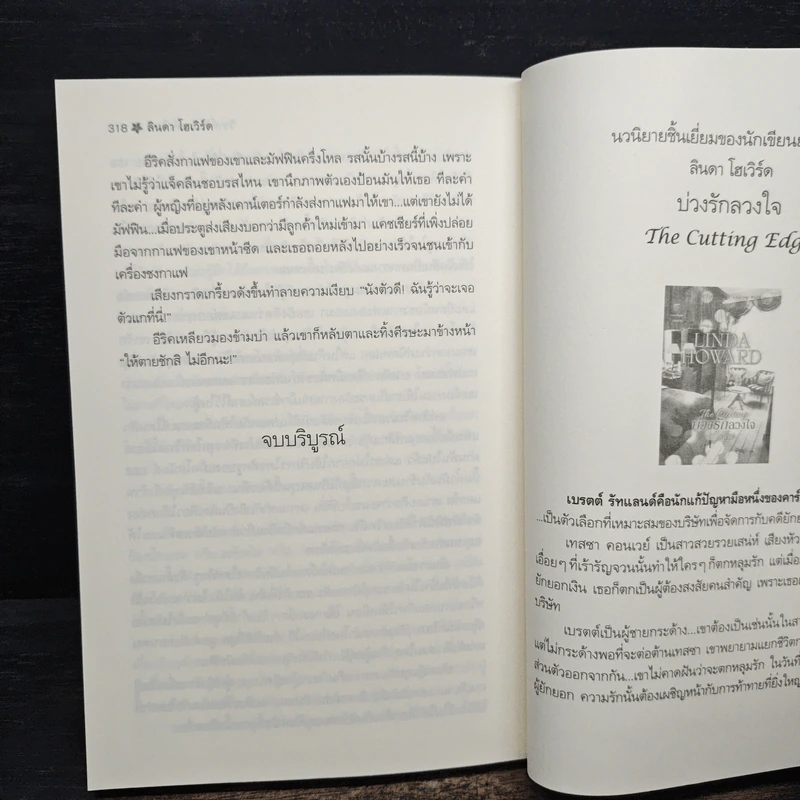 318 ลินดา โฮเวิร์ด
อีริคสั่งกาแฟของเขาและมัฟฟินครึ่งโหล รสนั้นบ้างรสนี้บ้าง เพราะ
เขาไม่รู้ว่าแจ็คลีนชอบรสไหน เขานึกภาพตัวเองป้อนมันให้เธอ ทีละคำ
ทีละคำ ผู้หญิงที่อยู่หลังเคาน์เตอร์กำลังส่งกาแฟมาให้เขา...แต่เขายังไม่ได้
มัฟฟิน...เมื่อประตูส่งเสียงบอกว่ามีลูกค้าใหม่เข้ามา แคชเชียร์ที่เพิ่งปล่อย
มือจากกาแฟของเขาหน้าซีด และเธอถอยหลังไปอย่างเร็วจนชนเข้ากับ
เครื่องชงกาแฟ
เสียงกราดเกรี้ยวดังขึ้นทำลายความเงียบ “นังตัวดี! ฉันรู้ว่าจะเจอ
ตัวแกที่นี่!”
อีริคเหลียวมองข้ามบ่า แล้วเขาก็หลับตาและทิ้งศีรษะมาข้างหน้า
“ให้ตายซักสิ ไม่อีกนะ!”
จบบริบูรณ์
นวนิยายชิ้นเยี่ยมของนักเขียน
ลินดา โฮเวิร์ด
บ่วงรักลวงใจ
The Cutting Edg
LINDA
HOWARD
The Cutting
บ่วงรักลวงใจ
เบรตต์ รัทแลนด์คือนักแก้ปัญหามือหนึ่งของคาร์
...เป็นตัวเลือกที่เหมาะสมของบริษัทเพื่อจัดการกับคดียัก
เทสซา คอนเวย์ เป็นสาวสวยรวยเสน่ห์ เสียงหัว
เอื่อยๆ ที่เร้ารัญจวนนั้นทำให้ใครๆ ก็ตกหลุมรัก แต่เมื่อ
ยักยอกเงิน เธอก็ตกเป็นผู้ต้องสงสัยคนสำคัญ เพราะเธอ
บริษัท
เบรตต์เป็นผู้ชายกระด้าง...เขาต้องเป็นเช่นนั้นใน
แต่ไม่กระด้างพอที่จะต่อต้านเทสซา เขาพยายามแยกชีวิต
ส่วนตัวออกจากกัน...เขาไม่คาดฝันว่าจะตกหลุมรัก ในวันที่
ผู้ยักยอก ความรักนั้นต้องเผชิญหน้ากับการท้าทายที่ยิ่งใหญ่